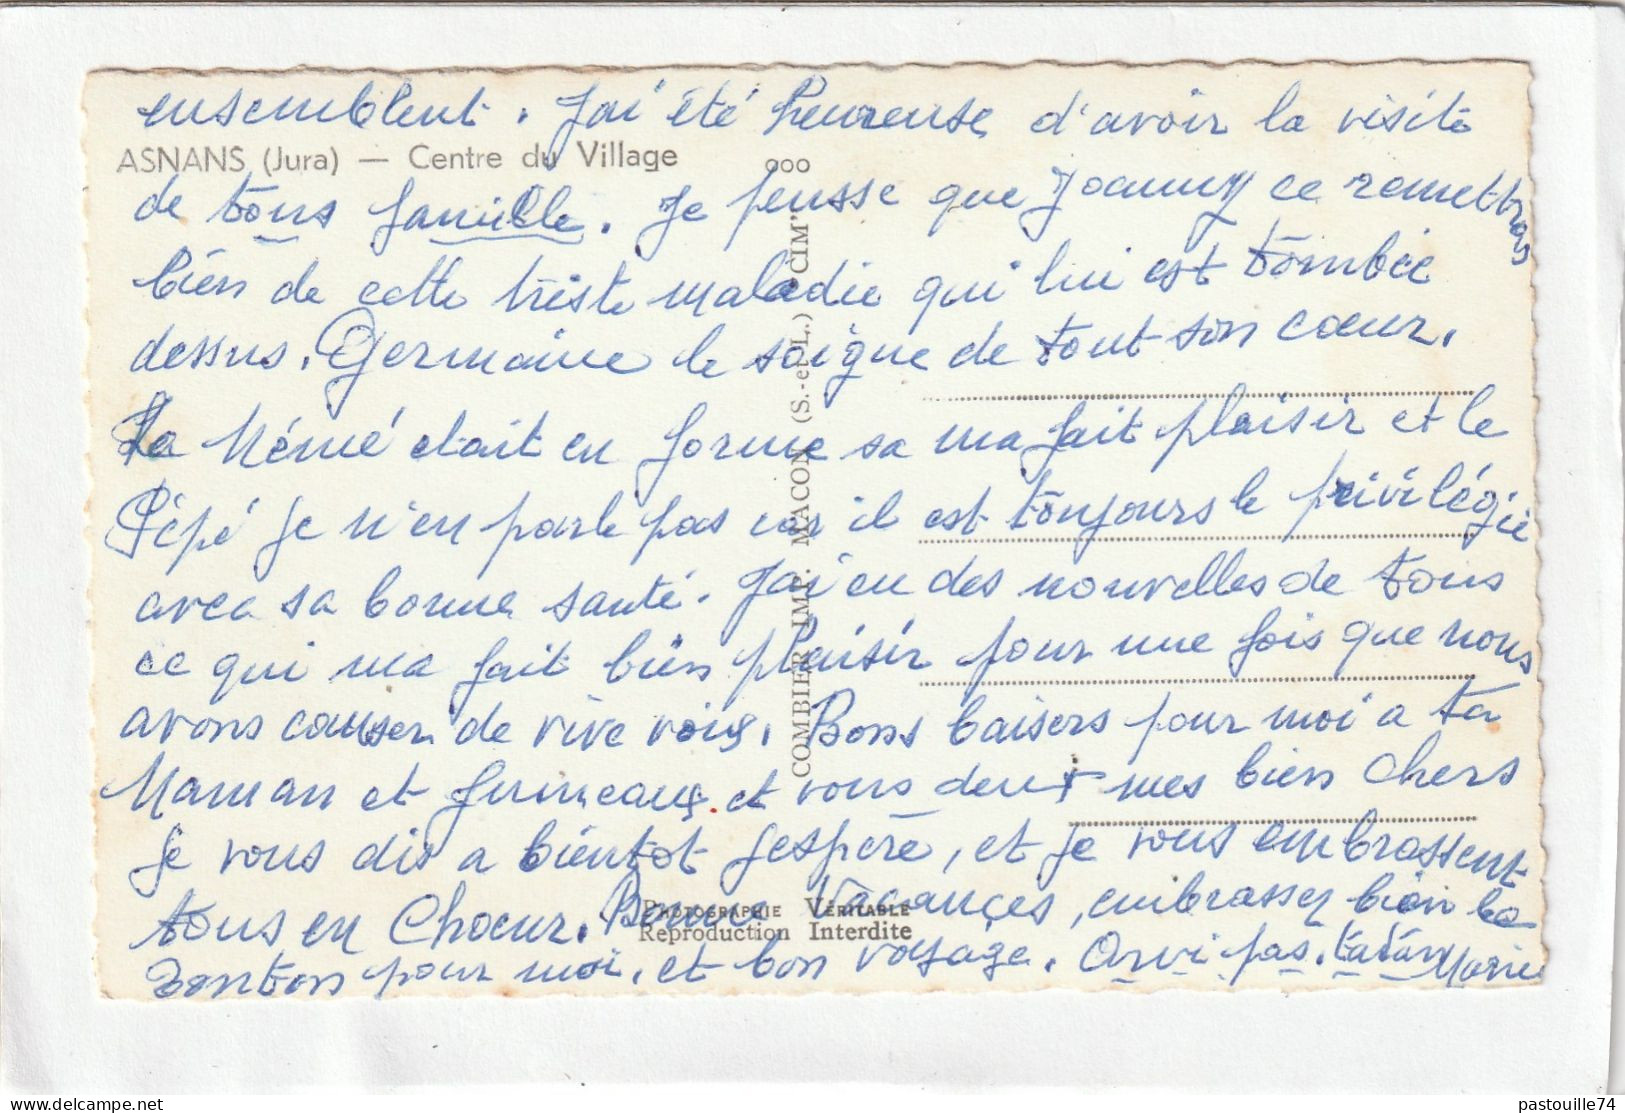 ensemblent. J'ai été heureuse d'avoir la visite
ASNANS (Jura) — Centre du Village
de tous famille. Je pensse que Joanny ce remettras
bien de cette triste maladie qui lui est tombée
dessus. Germaine le soigne de tout son cœur.
La Mémé etait en forme sa ma fait plaisir et le
Pépé je n'en parle pas car il est toujours le privilégié
avec sa bonne santé. J'ai eu des nouvelles de tous
ce qui ma fait bien plaisir pour une fois que nous
avons causer de vive voix. Bons baisers pour moi a ta
Maman et jumeaux et vous deux mes bien chers
je vous dis a bientot j'espère, et je vous embrassent
tous en Choeur. Bonne Vacances, embrasser bien le
tonton pour moi, et bon voyage. Orvi pas. tatan Marie
COMBIER IMP. MACON (S.-et-L.) "CIM"
PHOTOGRAPHIE VÉRITABLE
Reproduction Interdite
pastouille74